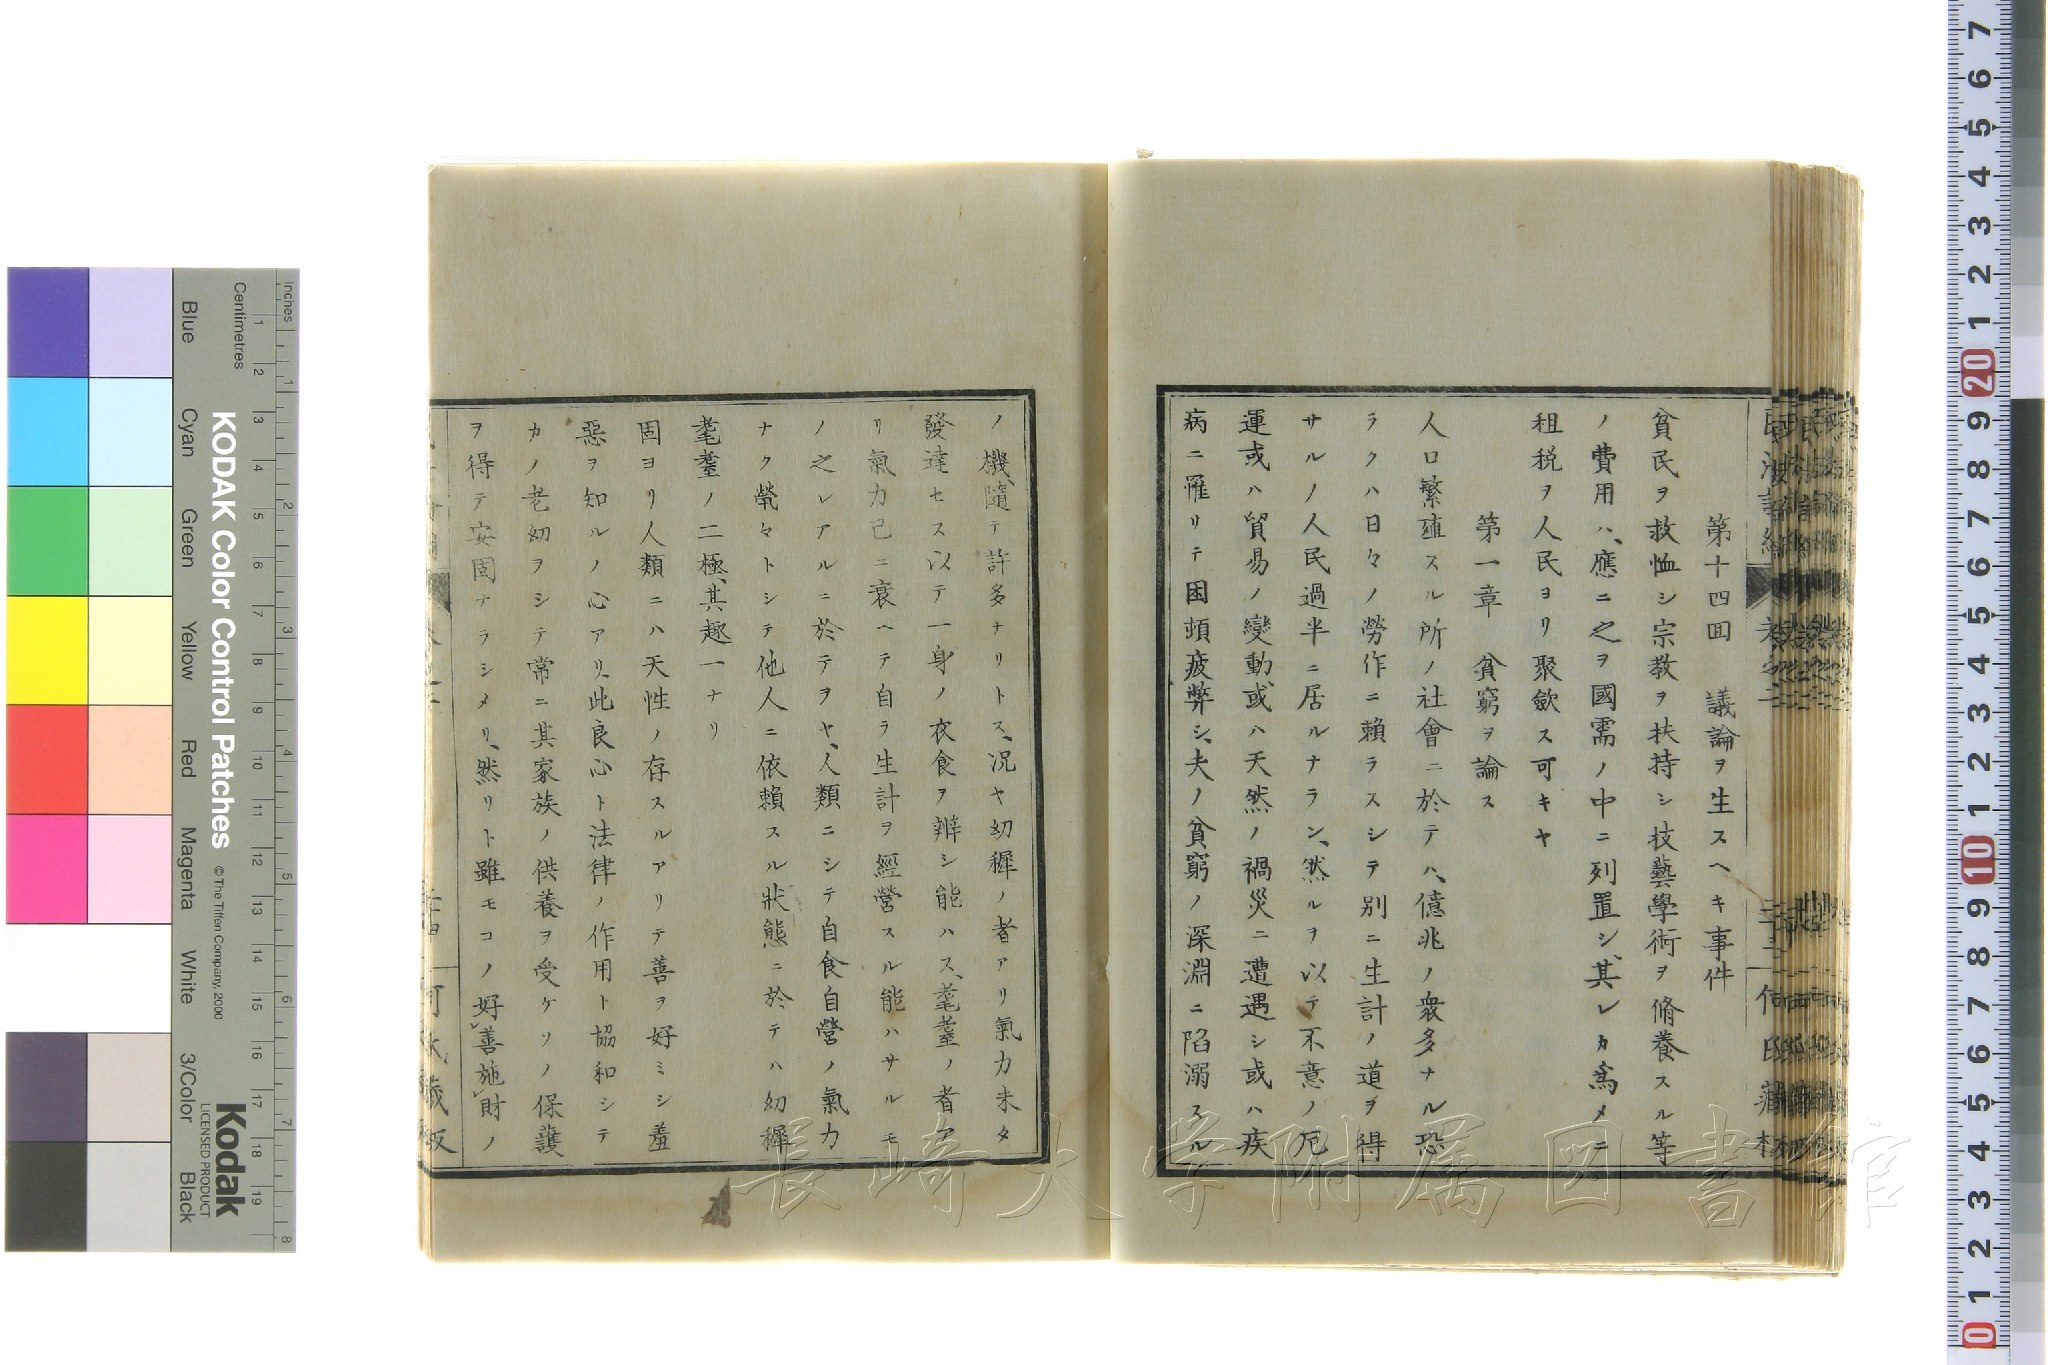 第十四囬　議論ヲ生スヘキ事件
貧民ヲ救恤シ宗教ヲ扶持シ技藝學術ヲ脩養スル等
ノ費用ハ、應ニ之ヲ國需ノ中ニ列置シ、其レカ爲メニ
租税ヲ人民ヨリ聚歛ス可キヤ
第一章　貧窮ヲ論ス
人口繁殖スル所ノ社會ニ於テハ、億兆ノ衆多ナル恐
ラクハ日々ノ勞作ニ賴ラスシテ別ニ生計ノ道ヲ得
サルノ人民過半ニ居ルナラン、然ルヲ以テ不意ノ厄
運或ハ貿易ノ變動或ハ天然ノ禍災ニ遭遇シ或ハ疾
病ニ罹リテ困頓疲弊シ、夫ノ貧窮ノ深淵ニ陷溺スル
ノ機、隨テ許多ナリトス、况ヤ幼穉ノ者アリ氣力未タ
發達セス以テ一身ノ衣食ヲ辨シ能ハス、耄耋ノ者ア
リ氣力已ニ衰ヘテ自ラ生計ヲ經營スル能ハサルモ
ノ之レアルニ於テヲヤ、人類ニシテ自食自營ノ氣力
ナク煢々トシテ他人ニ依賴スル狀態ニ於テハ幼穉
耄耋ノ二極、其趣一ナリ
固ヨリ人類ニハ天性ノ存スルアリテ善ヲ好ミシ羞
惡ヲ知ルノ心アリ、此良心ト法律ノ作用ト協和シテ
カノ老幼ヲシテ常ニ其家族ノ供養ヲ受ケソノ保護
ヲ得テ安固ナラシメリ、然リト雖モコノ好善施財ノ
長崎大学附属図書館
KODAK Color Control Patches
© The Tiffen Company, 2000
Kodak
LICENSED PRODUCT
Inches
Centimetres
Blue
Cyan
Green
Yellow
Red
Magenta
White
3/Color
Black
1 2 3 4 5 6 7 8
1 2 3 4 5 6 7 8 9 10 11 12 13 14 15 16 17 18 19
7 6 5 4 3 2 1 20 9 8 7 6 5 4 3 2 1 10 9 8 7 6 5 4 3 2 1 0